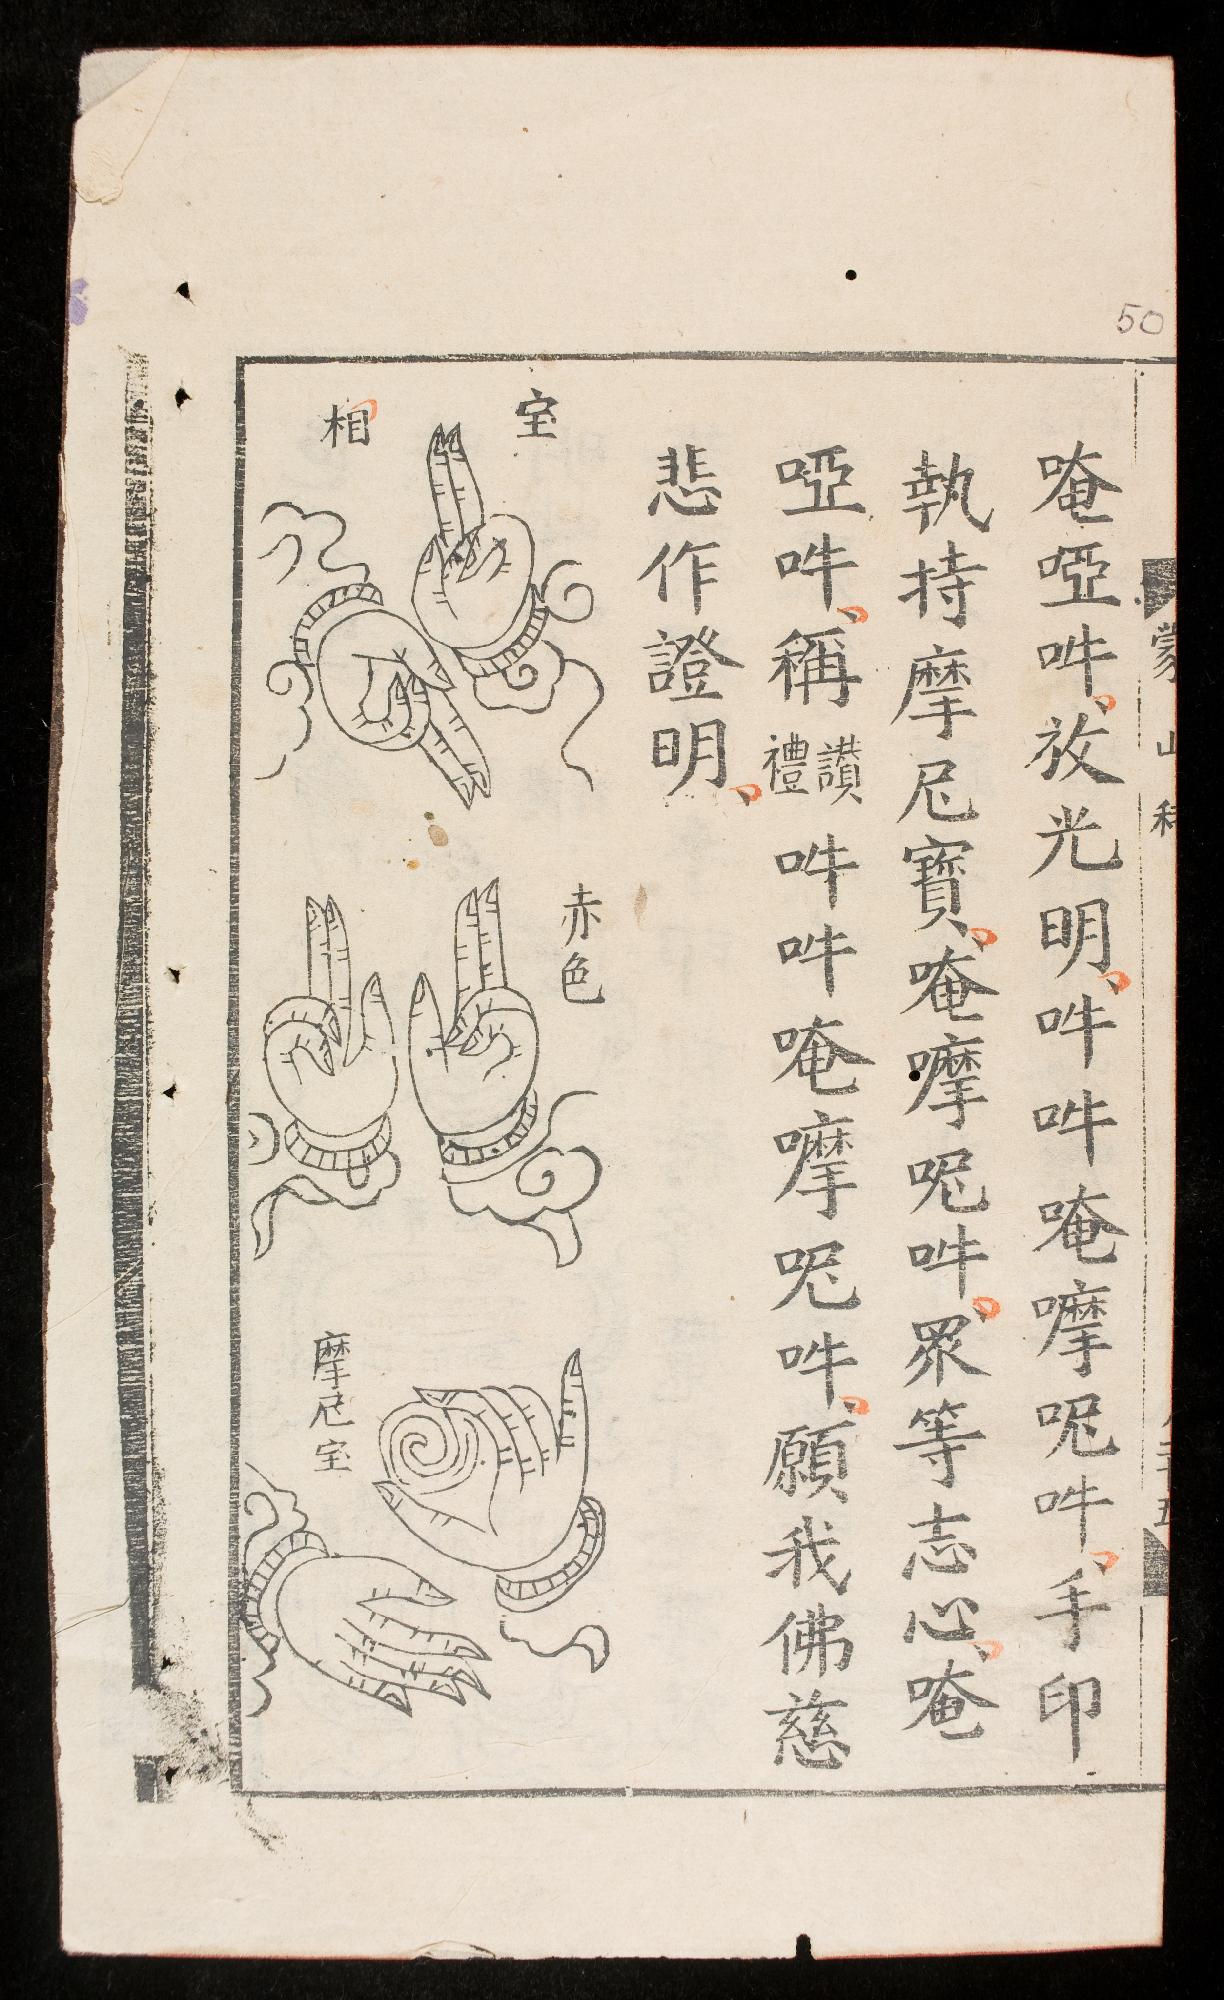 50
蒙山科
唵啞吽放光明吽吽唵嚤呢吽手印
執持摩尼寶唵嚤呢吽眾等志心唵
啞吽稱讃禮吽吽唵嚤呢吽願我佛慈
悲作證明
宝
相
赤色
摩尼宝